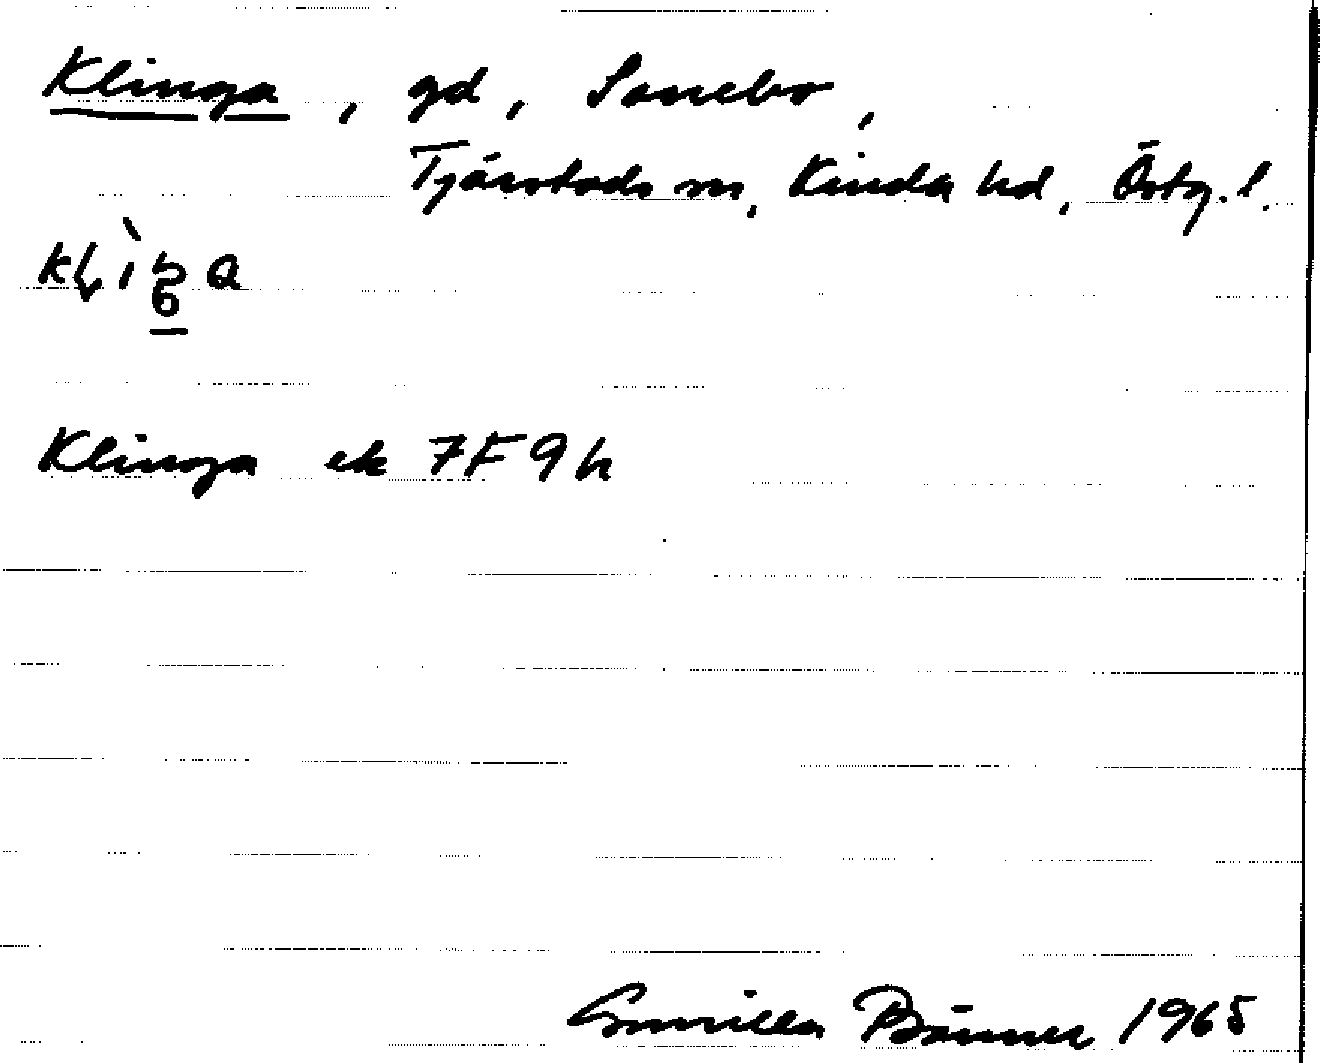 Klinga, gd, Sonebo,
Tjärstads sn, Kinda hd, Östg. l.
Klinga ek 7F9h
Gunilla 1965